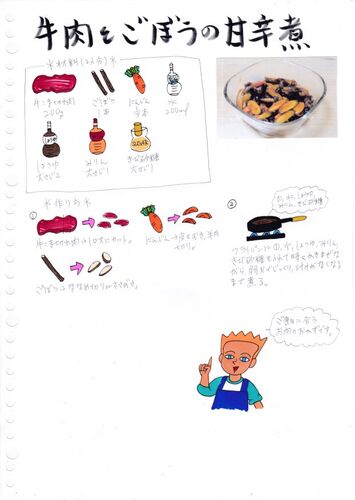 牛肉とごぼうの甘辛煮
※材料(2人分)※
牛こま切れ肉
200g
ごぼう
1本
にんじん
水
200ml
しょうゆ
大さじ2
みりん
大さじ1
きび砂糖
大さじ1
※作り方※
①
牛こま切れ肉→1口大にカット。
にんじん→皮をむき、半月
切り。
ごぼうはななめ切り
②
フライパンに
水、しょうゆ、みりん、
きび砂糖を入れて時々かきまぜな
がら、弱火でじっくり、汁けがなくなる
まで煮る。
ご飯に合う
お肉のおかずです。